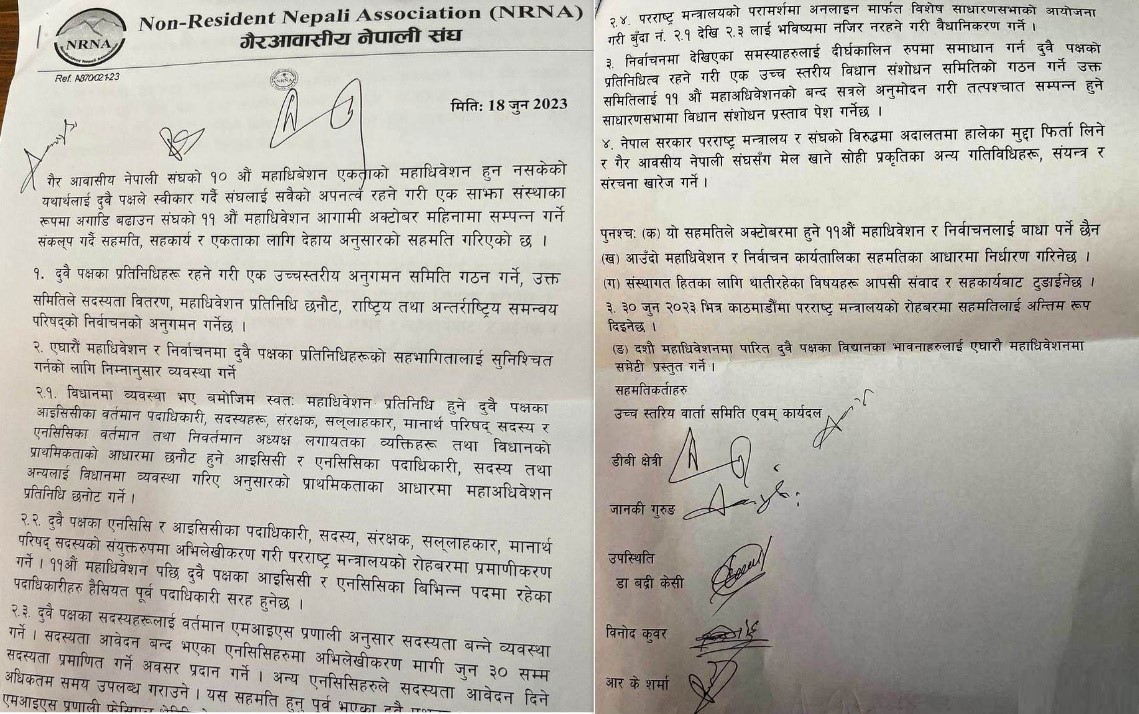 Non-Resident Nepali Association (NRNA)
गैरआवासीय नेपाली संघ
NRNA
Ref. A870/02123
मिति: 18 जुन 2023
गैर आवासीय नेपाली संघको १० औं महाधिबेशन एकताको महाधिवेशन हुन नसकेको
यथार्थलाई दुवै पक्षले स्वीकार गर्दै संघलाई सवैको अपनत्व रहने गरी एक साझा संस्थाका
रूपमा अगाडि बढाउन संघको ११ औं महाधिवेशन आगामी अक्टोबर महिनामा सम्पन्न गर्ने
संकल्प गर्दै सहमति, सहकार्य र एकताका लागि देहाय अनुसारको सहमति गरिएको छ ।
१. दुवै पक्षका प्रतिनिधिहरू रहने गरी एक उच्चस्तरीय अनुगमन समिति गठन गर्ने, उक्त
समितिले सदस्यता वितरण, महाधिवेशन प्रतिनिधि छनौट, राष्ट्रिय तथा अन्तर्राष्ट्रिय समन्वय
परिषद्को निर्वाचनको अनुगमन गर्नेछ ।
२. एघारौं महाधिवेशन र निर्वाचनमा दुवै पक्षका प्रतिनिधिहरूको सहभागितालाई सुनिश्चित
गर्नको लागि निम्नानुसार व्यवस्था गर्ने
२.१. विधानमा व्यवस्था भए बमोजिम स्वतः महाधिवेशन प्रतिनिधि हुने दुवै पक्षका
आइसिसीका वर्तमान पदाधिकारी, सदस्यहरू, संरक्षक, सल्लाहकार, मानार्थ परिषद् सदस्य र
एनसिसिका वर्तमान तथा निवर्तमान अध्यक्ष लगायतका व्यक्तिहरू तथा विधानको
प्राथमिकताको आधारमा छनौट हुने आइसिसी र एनसिसिका पदाधिकारी, सदस्य तथा
अन्यलाई विधानमा व्यवस्था गरिए अनुसारको प्राथमिकताका आधारमा महाअधिवेशन
प्रतिनिधि छनोट गर्ने ।
२.२. दुवै पक्षका एनसिसि र आइसिसीका पदाधिकारी, सदस्य, संरक्षक, सल्लाहकार, मानार्थ
परिषद् सदस्यको संयुक्तरुपमा अभिलेखीकरण गरी परराष्ट्र मन्त्रालयको रोहबरमा प्रमाणीकरण
गर्ने । ११औं महाधिवेशन पछि दुवै पक्षका आइसिसी र एनसिसिका बिभिन्न पदमा रहेका
पदाधिकारीहरु हैसियत पूर्व पदाधिकारी सरह हुनेछ ।
२.३. दुवै पक्षका सदस्यहरूलाई वर्तमान एमआइएस प्रणाली अनुसार सदस्यता बन्ने व्यवस्था
गर्ने । सदस्यता आवेदन बन्द भएका एनसिसिहरुमा अभिलेखीकरण मागी जुन ३० सम्म
सदस्यता प्रमाणित गर्ने अवसर प्रदान गर्ने । अन्य एनसिसिहरुले सदस्यता आवेदन दिने
अधिकतम समय उपलब्ध गराउने । यस सहमति हुनु पूर्व भएका दुवै
एमआइएस प्रणाली
२.४. परराष्ट्र मन्त्रालयको परामर्शमा अनलाइन मार्फत विशेष साधारणसभाको आयोजना
गरी बुंदा नं. २.१ देखि २.३ लाई भविष्यमा नजिर नरहने गरी वैधानिकरण गर्ने ।
३. निर्वाचनमा देखिएका समस्याहरुलाई दीर्घकालिन रुपमा समाधान गर्न दुवै पक्षको
प्रतिनिधित्व रहने गरी एक उच्च स्तरीय विधान संशोधन समितिको गठन गर्ने उक्त
समितिलाई ११ औं महाअधिवेशनको बन्द सत्रले अनुमोदन गरी तत्पश्चात सम्पन्न हुने
साधारणसभामा विधान संशोधन प्रस्ताव पेश गर्नेछ ।
४. नेपाल सरकार परराष्ट्र मन्त्रालय र संघको विरुद्धमा अदालतमा हालेका मुद्दा फिर्ता लिने
र गैर आवसीय नेपाली संघसँग मेल खाने सोही प्रकृतिका अन्य गतिविधिहरू, संयन्त्र र
संरचना खारेज गर्ने ।
पुनश्चः (क) यो सहमतिले अक्टोबरमा हुने ११औं महाधिवेशन र निर्वाचनलाई बाधा पर्ने छैन
(ख) आउँदो महाधिवेशन र निर्वाचन कार्यतालिका सहमतिका आधारमा निर्धारण गरिनेछ ।
(ग) संस्थागत हितका लागि थातीरहेका विषयहरू आपसी संवाद र सहकार्यबाट टुङाईनेछ ।
३. ३० जुन २०२३ भित्र काठमाडौंमा परराष्ट्र मन्त्रालयको रोहबरमा सहमतिलाई अन्तिम रूप
दिइनेछ ।
(ङ) दशौ महाधिवेशनमा पारित दुवै पक्षका विधानका भावनाहरुलाई एघारौ महाधिवेशनमा
समेटी प्रस्तुत गर्ने ।
सहमतिकर्ताहरु
उच्च स्तरिय वार्ता समिति एवम् कार्यदल
डीबी क्षेत्री
जानकी गुरुङ
उपस्थिति
डा बद्री केसी
विनोद कुवर
आर के शर्मा